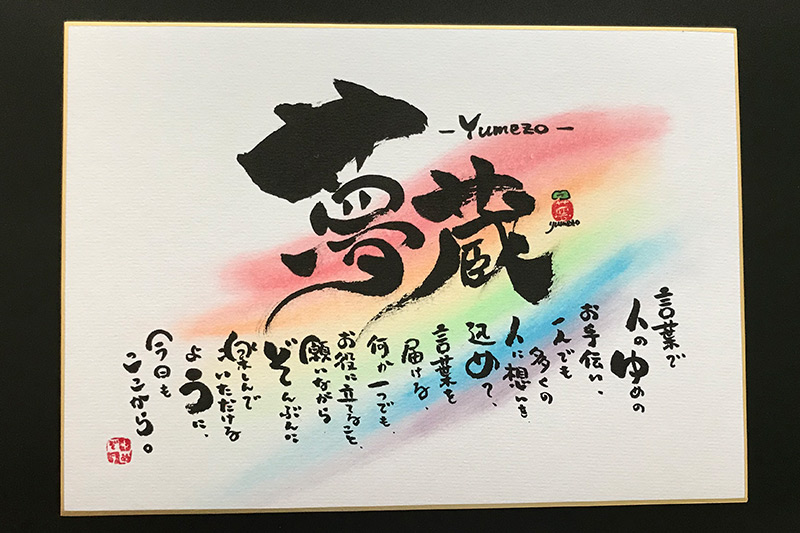 夢蔵
-Yumezo-
yumezo
言葉で
人のゆめの
お手伝い、
一人でも
多くの
人に想いを
込めて、
言葉を
届ける、
何か一つでも、
お役に立てること、
願いながら
ぞんぶんに
楽しんで
いただける
ように、
今日も
ここから。